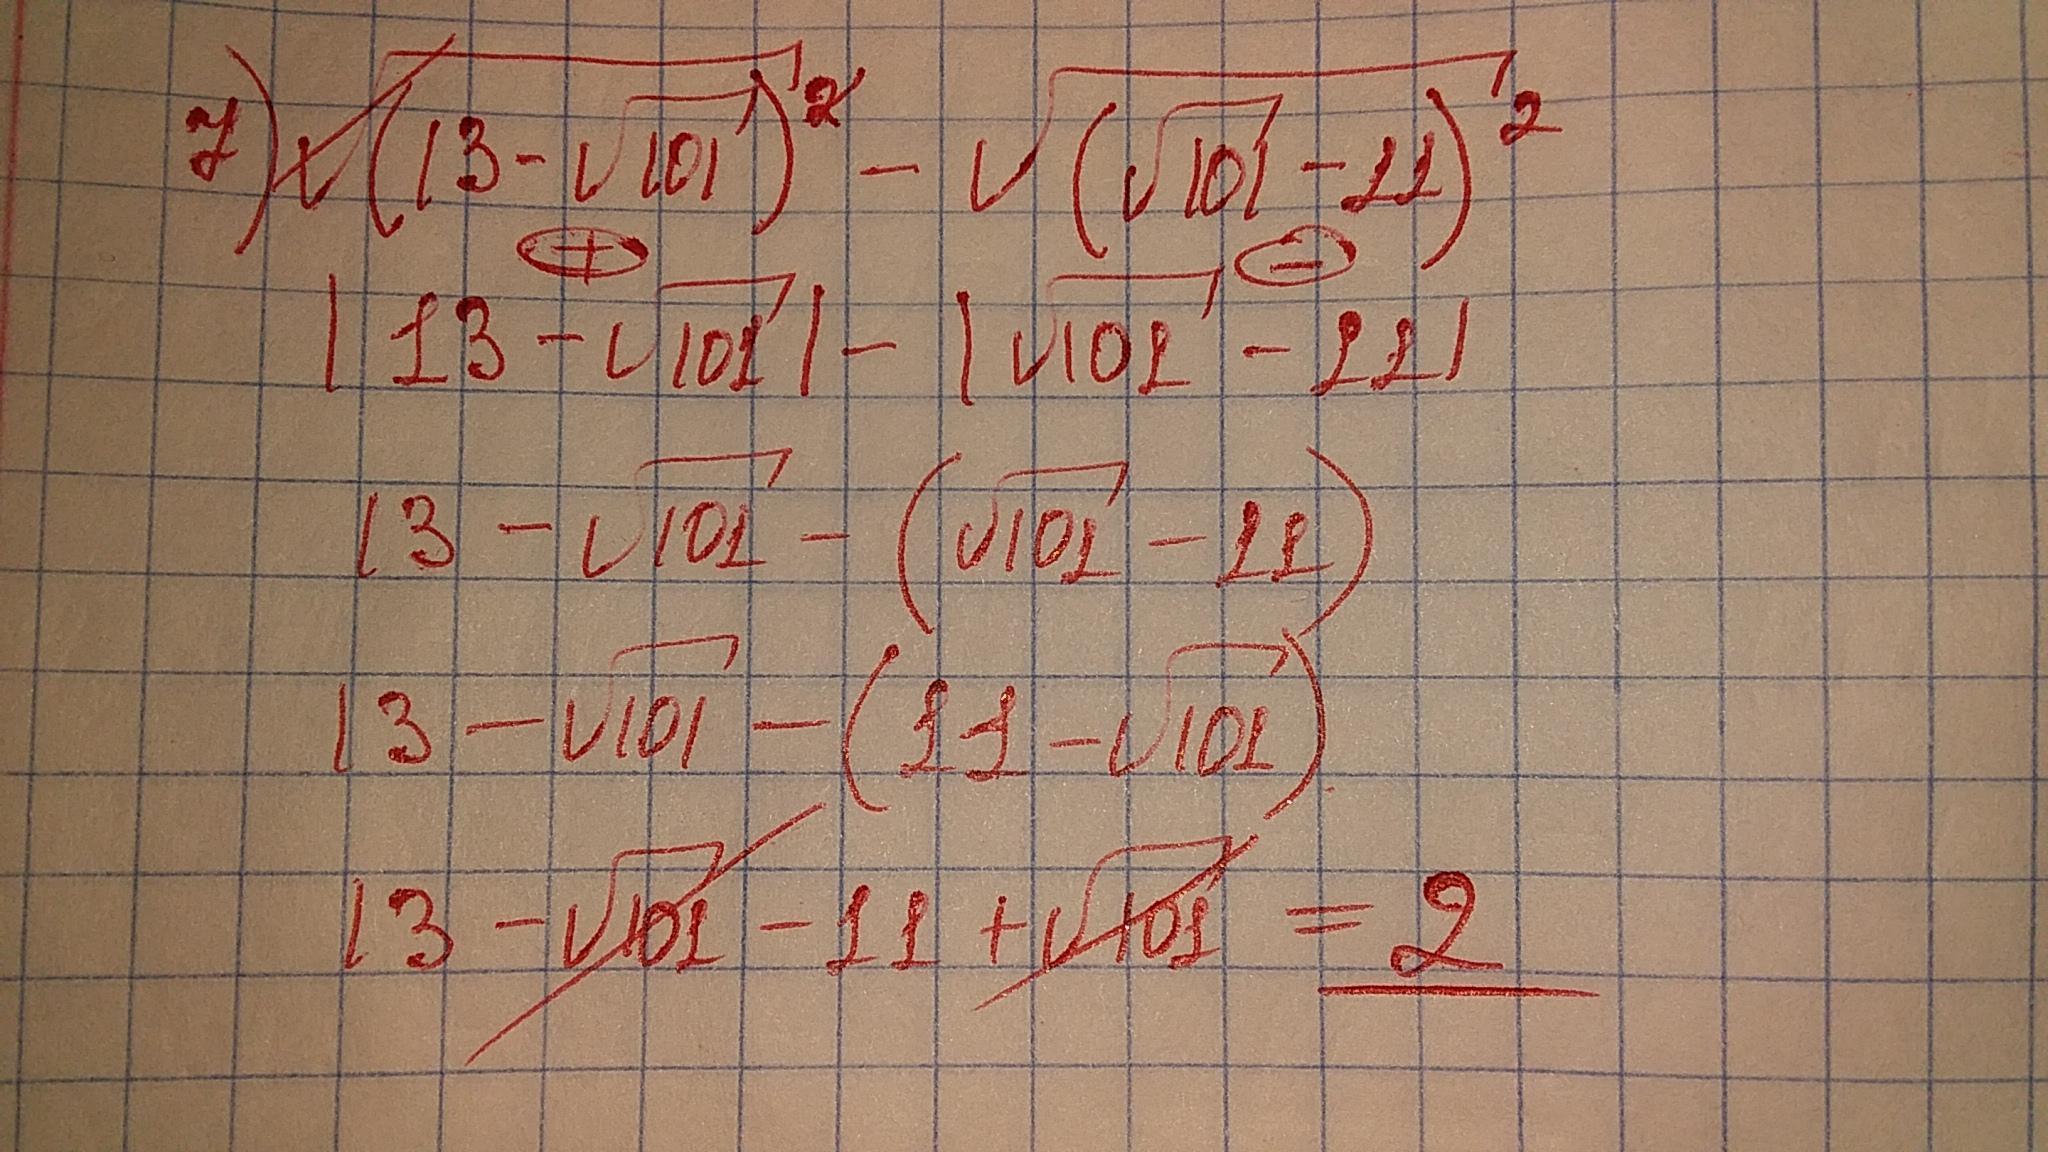 7) √(13-√101)² - √(√101-11)²
⊕ ⊖
|13-√101| - |√101-11|
13-√101-(√101-11)
13-√101-(11-√101)
13-√101-11+√101 = 2